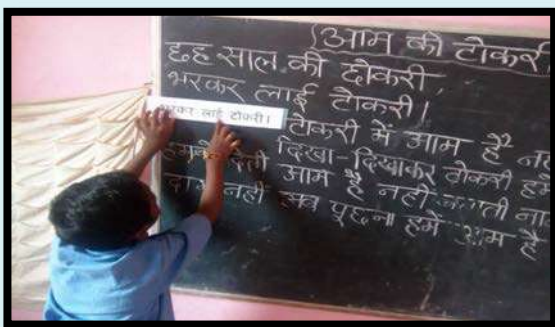 (आम की टोकरी
छह साल की छोकरी,
भरकर लाई टोकरी।
भरकर लाई टोकरी।
टोकरी में आम हैं
दिखा-दिखाकर टोकरी
देती आम है नहीं नाम
नहीं अब पूछना हमें आम है